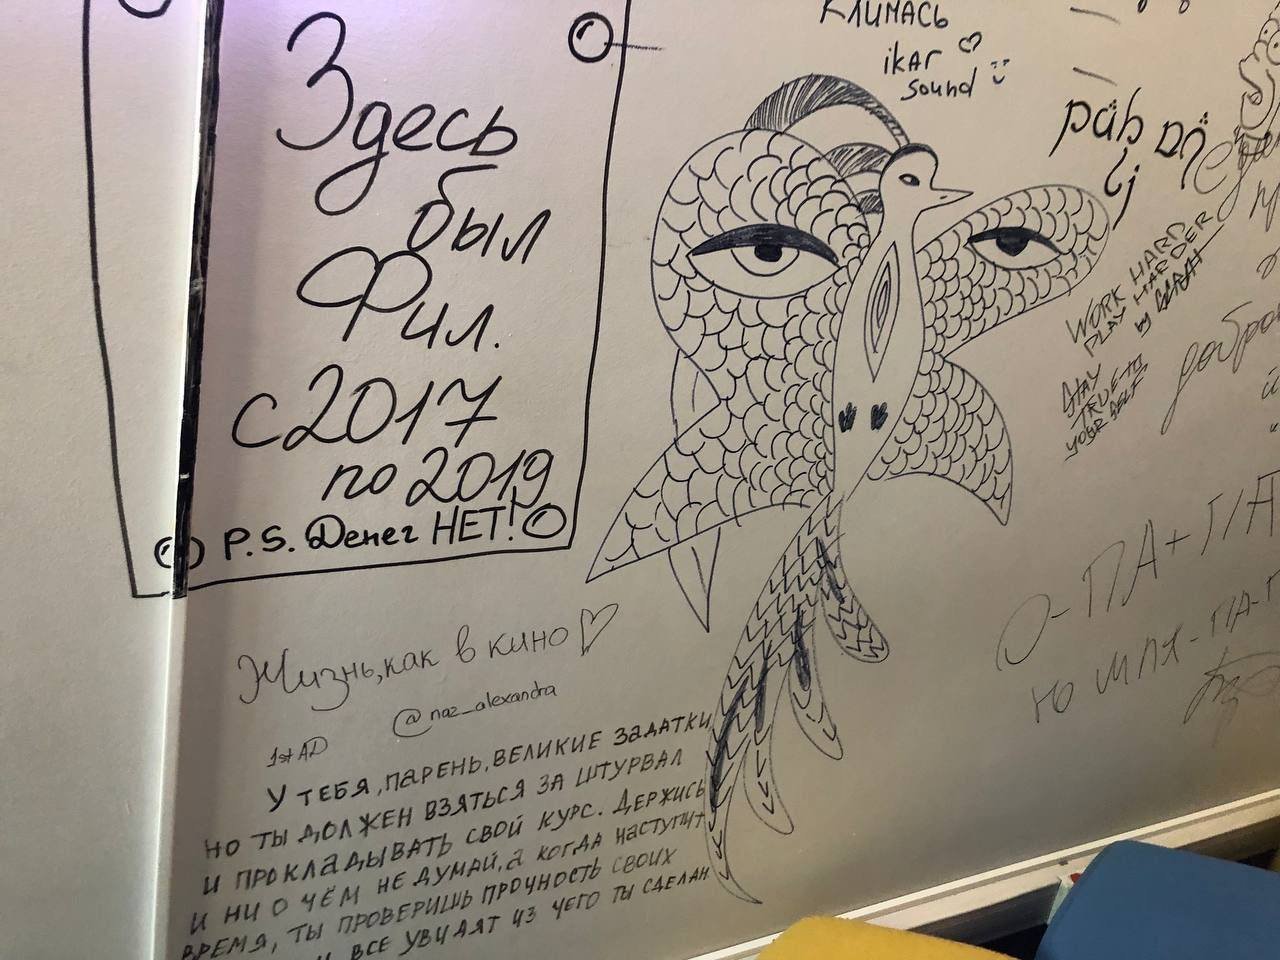 Здесь
был
Фил.
с 2017
по 2019
P.S. Денег НЕТ!
Климась
ikar
sound
WORK HARD
PLAY HARDER
by
STAY
TRUE TO
YOURSELF
О-ПА+ПА
Ю МПЯ-ПА-П
Жизнь, как в кино
@naz_alexandra
1st AD
У ТЕБЯ, ПАРЕНЬ, ВЕЛИКИЕ ЗАДАТКИ
НО ТЫ ДОЛЖЕН ВЗЯТЬСЯ ЗА ШТУРВАЛ
И ПРОКЛАДЫВАТЬ СВОЙ КУРС. ДЕРЖИСЬ
И НИ О ЧЁМ НЕ ДУМАЙ, А КОГДА НАСТУПИТ
ВРЕМЯ, ТЫ ПРОВЕРИШЬ ПРОЧНОСТЬ СВОИХ
И ВСЕ УВИДЯТ ИЗ ЧЕГО ТЫ СДЕЛАН